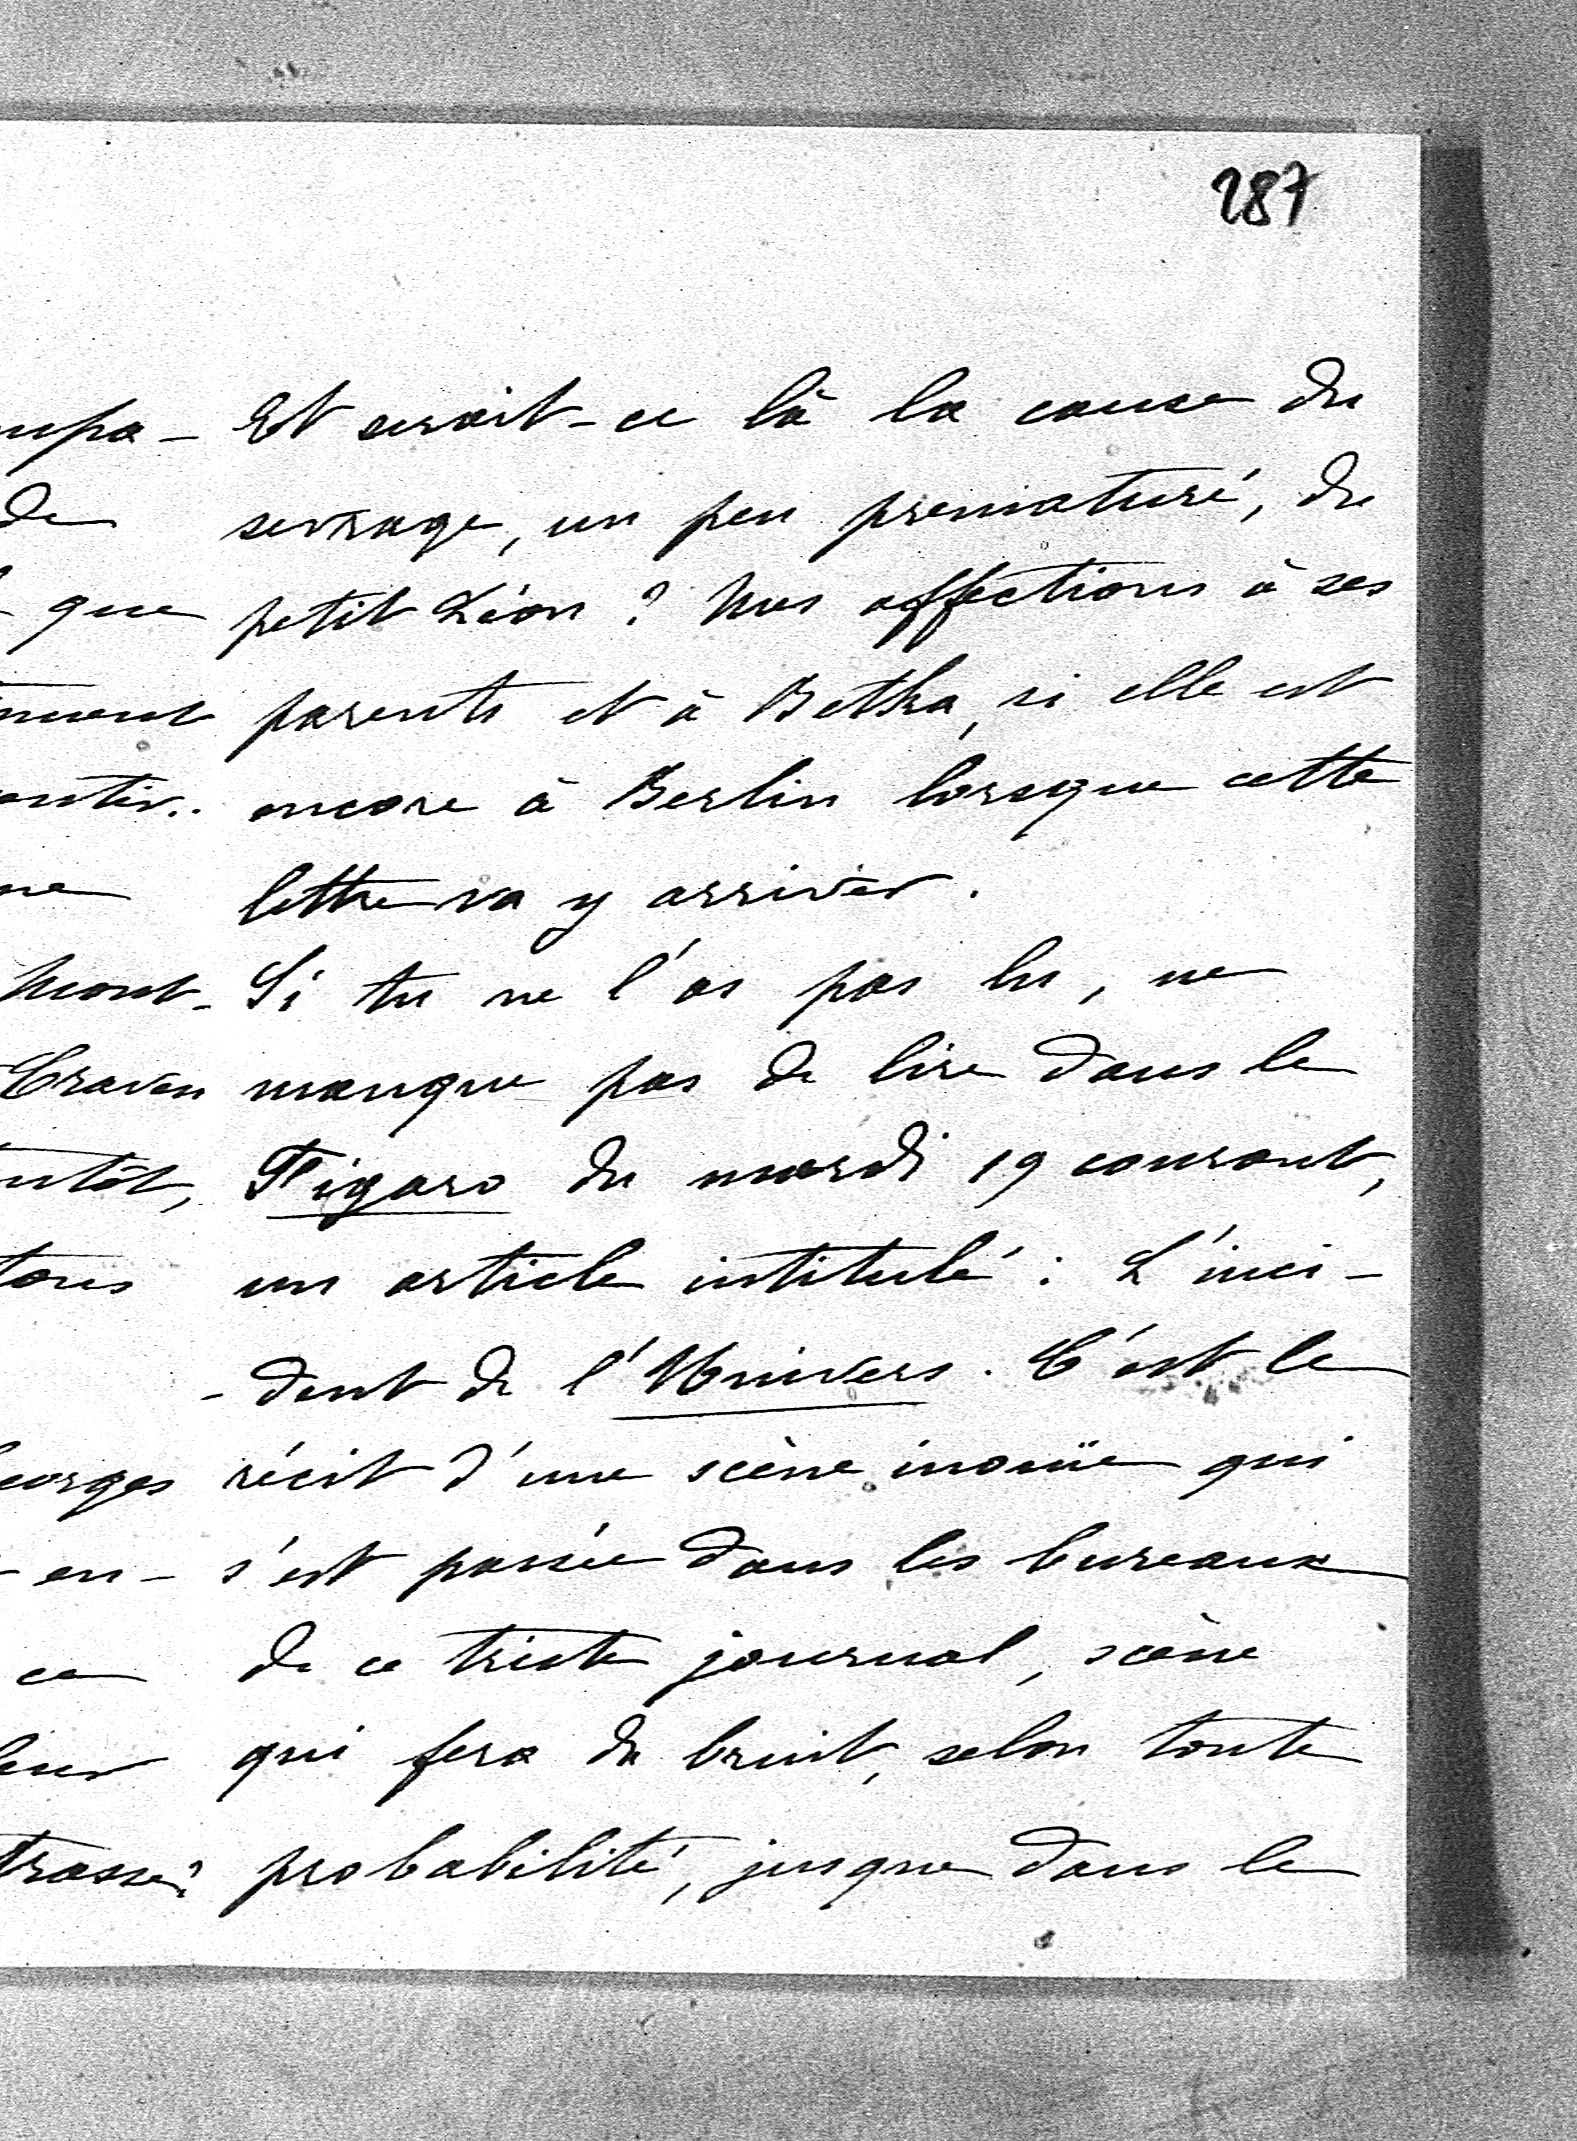 287
Et serait-ce là la cause du
sevrage, un peu prématuré, du
petit Léon ? Mes affections à ses
parents et à Betka, si elle est
encore à Berlin lorsque cette
lettre va y arriver.
Si tu ne l'as pas lu, ne
manque pas de lire dans le
Figaro du mardi 19 courant,
un article intitulé : L'inci-
-dent de l'Univers. C'est le
récit d'une scène inouïe qui
s'est passée dans les bureaux
de ce triste journal, scène
qui fera du bruit, selon toute
probabilité, jusque dans le
de
que
Mont-
Craven
tous
en-
ce